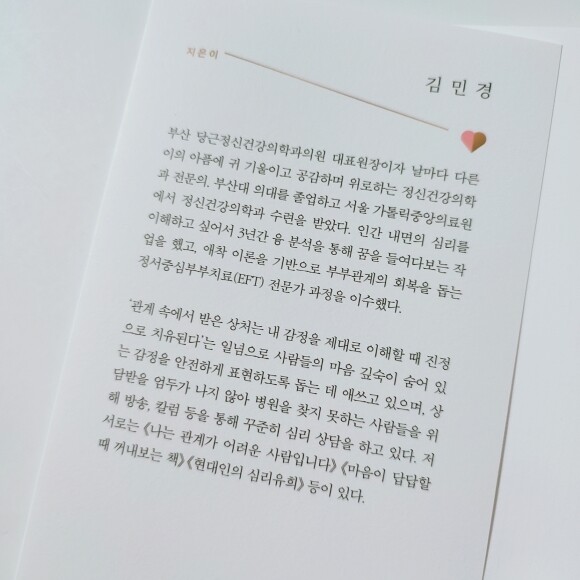 지은이
김민경
부산 당근정신건강의학과의원 대표원장이자 날마다 다른
이의 아픔에 귀 기울이고 공감하며 위로하는 정신건강의학
과 전문의. 부산대 의대를 졸업하고 서울 가톨릭중앙의료원
에서 정신건강의학과 수련을 받았다. 인간 내면의 심리를
이해하고 싶어서 3년간 융 분석을 통해 꿈을 들여다보는 작
업을 했고, 애착 이론을 기반으로 부부관계의 회복을 돕는
정서중심부부치료(EFT) 전문가 과정을 이수했다.
‘관계 속에서 받은 상처는 내 감정을 제대로 이해할 때 진정
으로 치유된다’는 일념으로 사람들의 마음 깊숙이 숨어 있
는 감정을 안전하게 표현하도록 돕는 데 애쓰고 있으며, 상
담받을 엄두가 나지 않아 병원을 찾지 못하는 사람들을 위
해 방송, 칼럼 등을 통해 꾸준히 심리 상담을 하고 있다. 저
서로는 《나는 관계가 어려운 사람입니다》 《마음이 답답할
때 꺼내보는 책》 《현대인의 심리유희》 등이 있다.